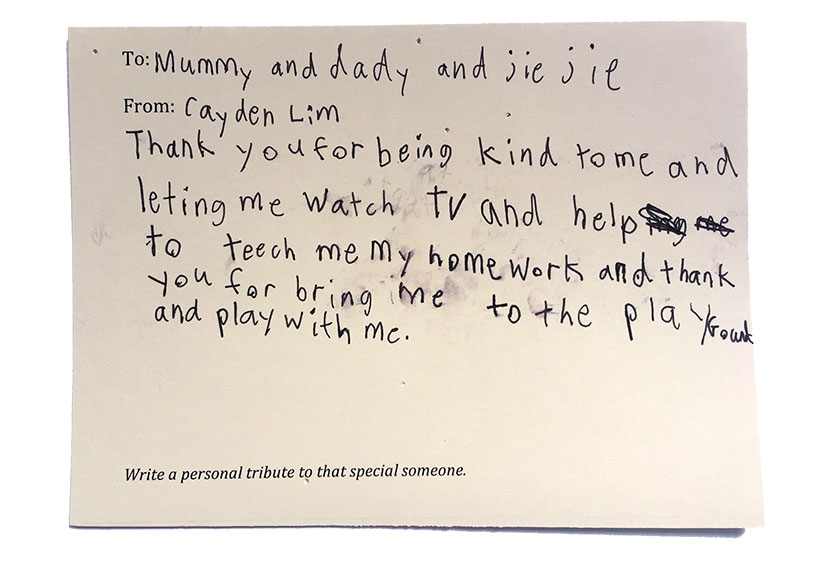 To: Mummy and dady and jie jie
From: Cayden Lim
Thank you for being kind to me and
leting me watch TV and help
to teech me my home work and thank
you for bring me to the play
and play with me.
Write a personal tribute to that special someone.